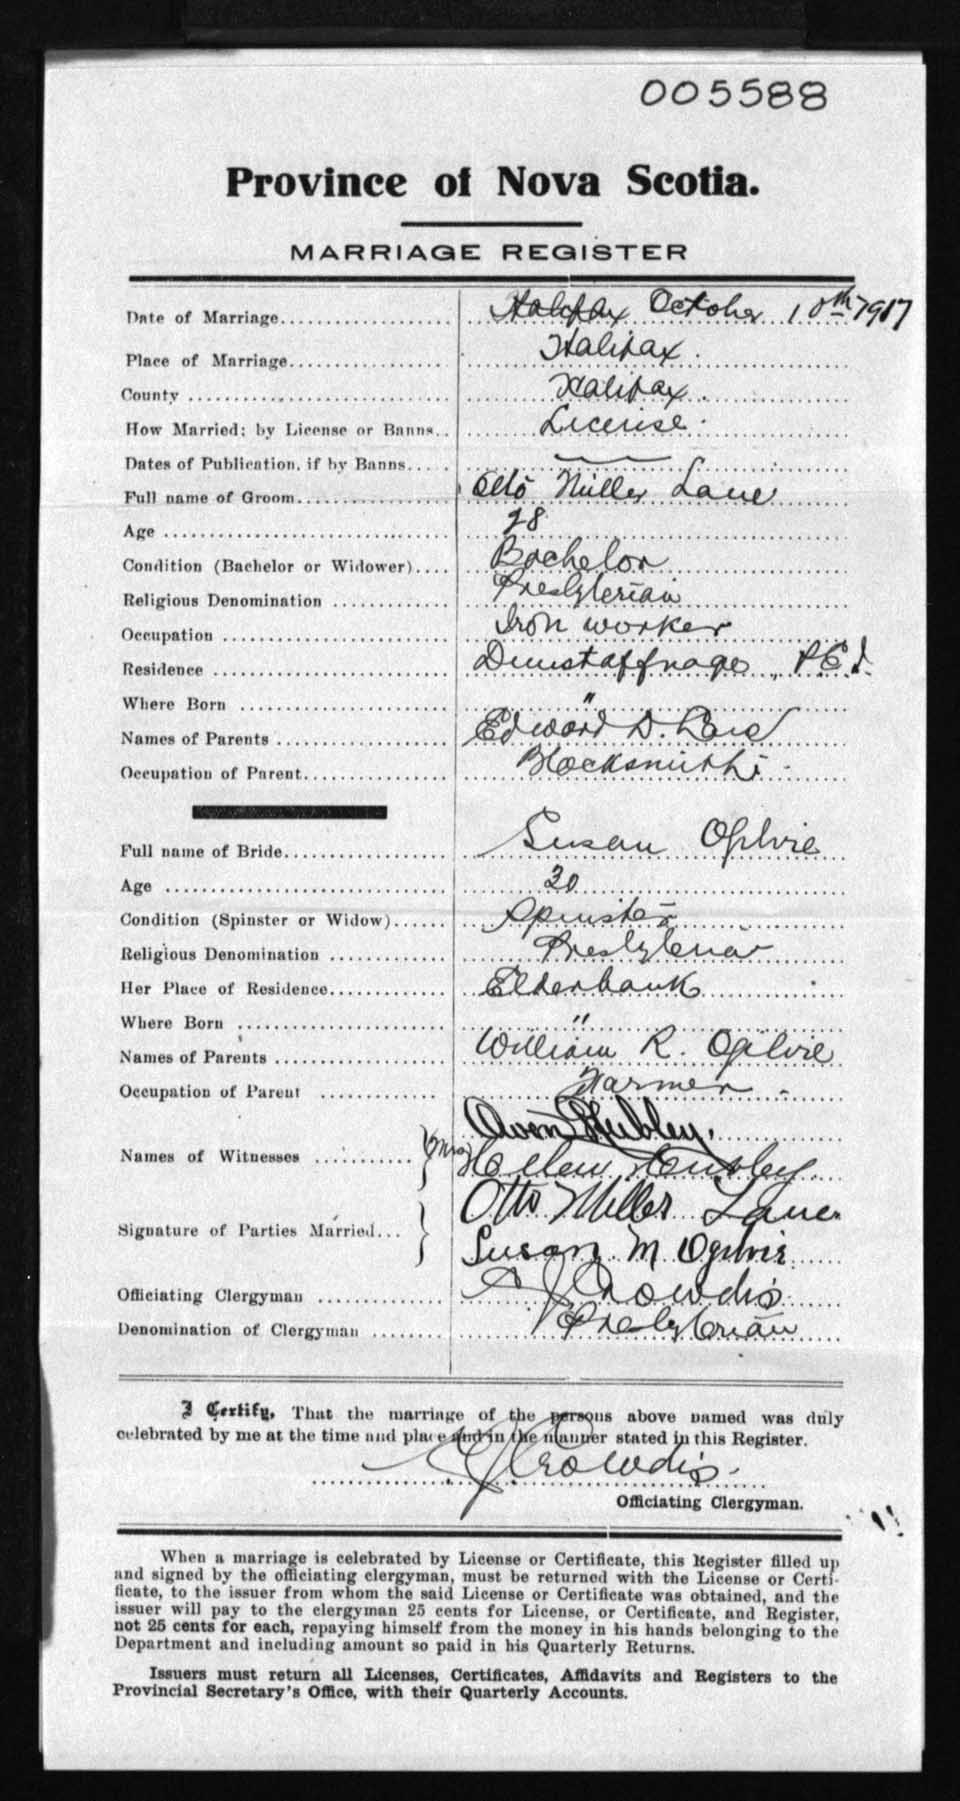 005588
Province of Nova Scotia.
MARRIAGE REGISTER
Date of Marriage Halifax October 10th 1917
Place of Marriage Halifax.
County Halifax.
How Married; by License or Banns License.
Dates of Publication, if by Banns
Full name of Groom Otto Miller Lane
Age 28
Condition (Bachelor or Widower) Bachelor
Religious Denomination Presbyterian
Occupation Iron worker
Residence Dunstaffnage, P.E.I.
Where Born "
Names of Parents Edward D.
Occupation of Parent Blacksmith
Full name of Bride Susan Ogilvie
Age
Condition (Spinster or Widow) Spinster
Religious Denomination Presbyterian
Her Place of Residence Elderbank
Where Born "
Names of Parents William R. Ogilvie
Occupation of Parent Farmer.
Avon Hubley.
Names of Witnesses (Mrs) Hubley.
Otto Miller Lane.
Signature of Parties Married
Susan M Ogilvie
Officiating Clergyman A J Crowdis
Denomination of Clergyman Presbyterian
I Certify, That the marriage of the persons above named was duly
celebrated by me at the time and place and in the manner stated in this Register.
A J Crowdis.
Officiating Clergyman.
When a marriage is celebrated by License or Certificate, this Register filled up
and signed by the officiating clergyman, must be returned with the License or Certi-
ficate, to the issuer from whom the said License or Certificate was obtained, and the
issuer will pay to the clergyman 25 cents for License, or Certificate, and Register,
not 25 cents for each, repaying himself from the money in his hands belonging to the
Department and including amount so paid in his Quarterly Returns.
Issuers must return all Licenses, Certificates, Affidavits and Registers to the
Provincial Secretary's Office, with their Quarterly Accounts.